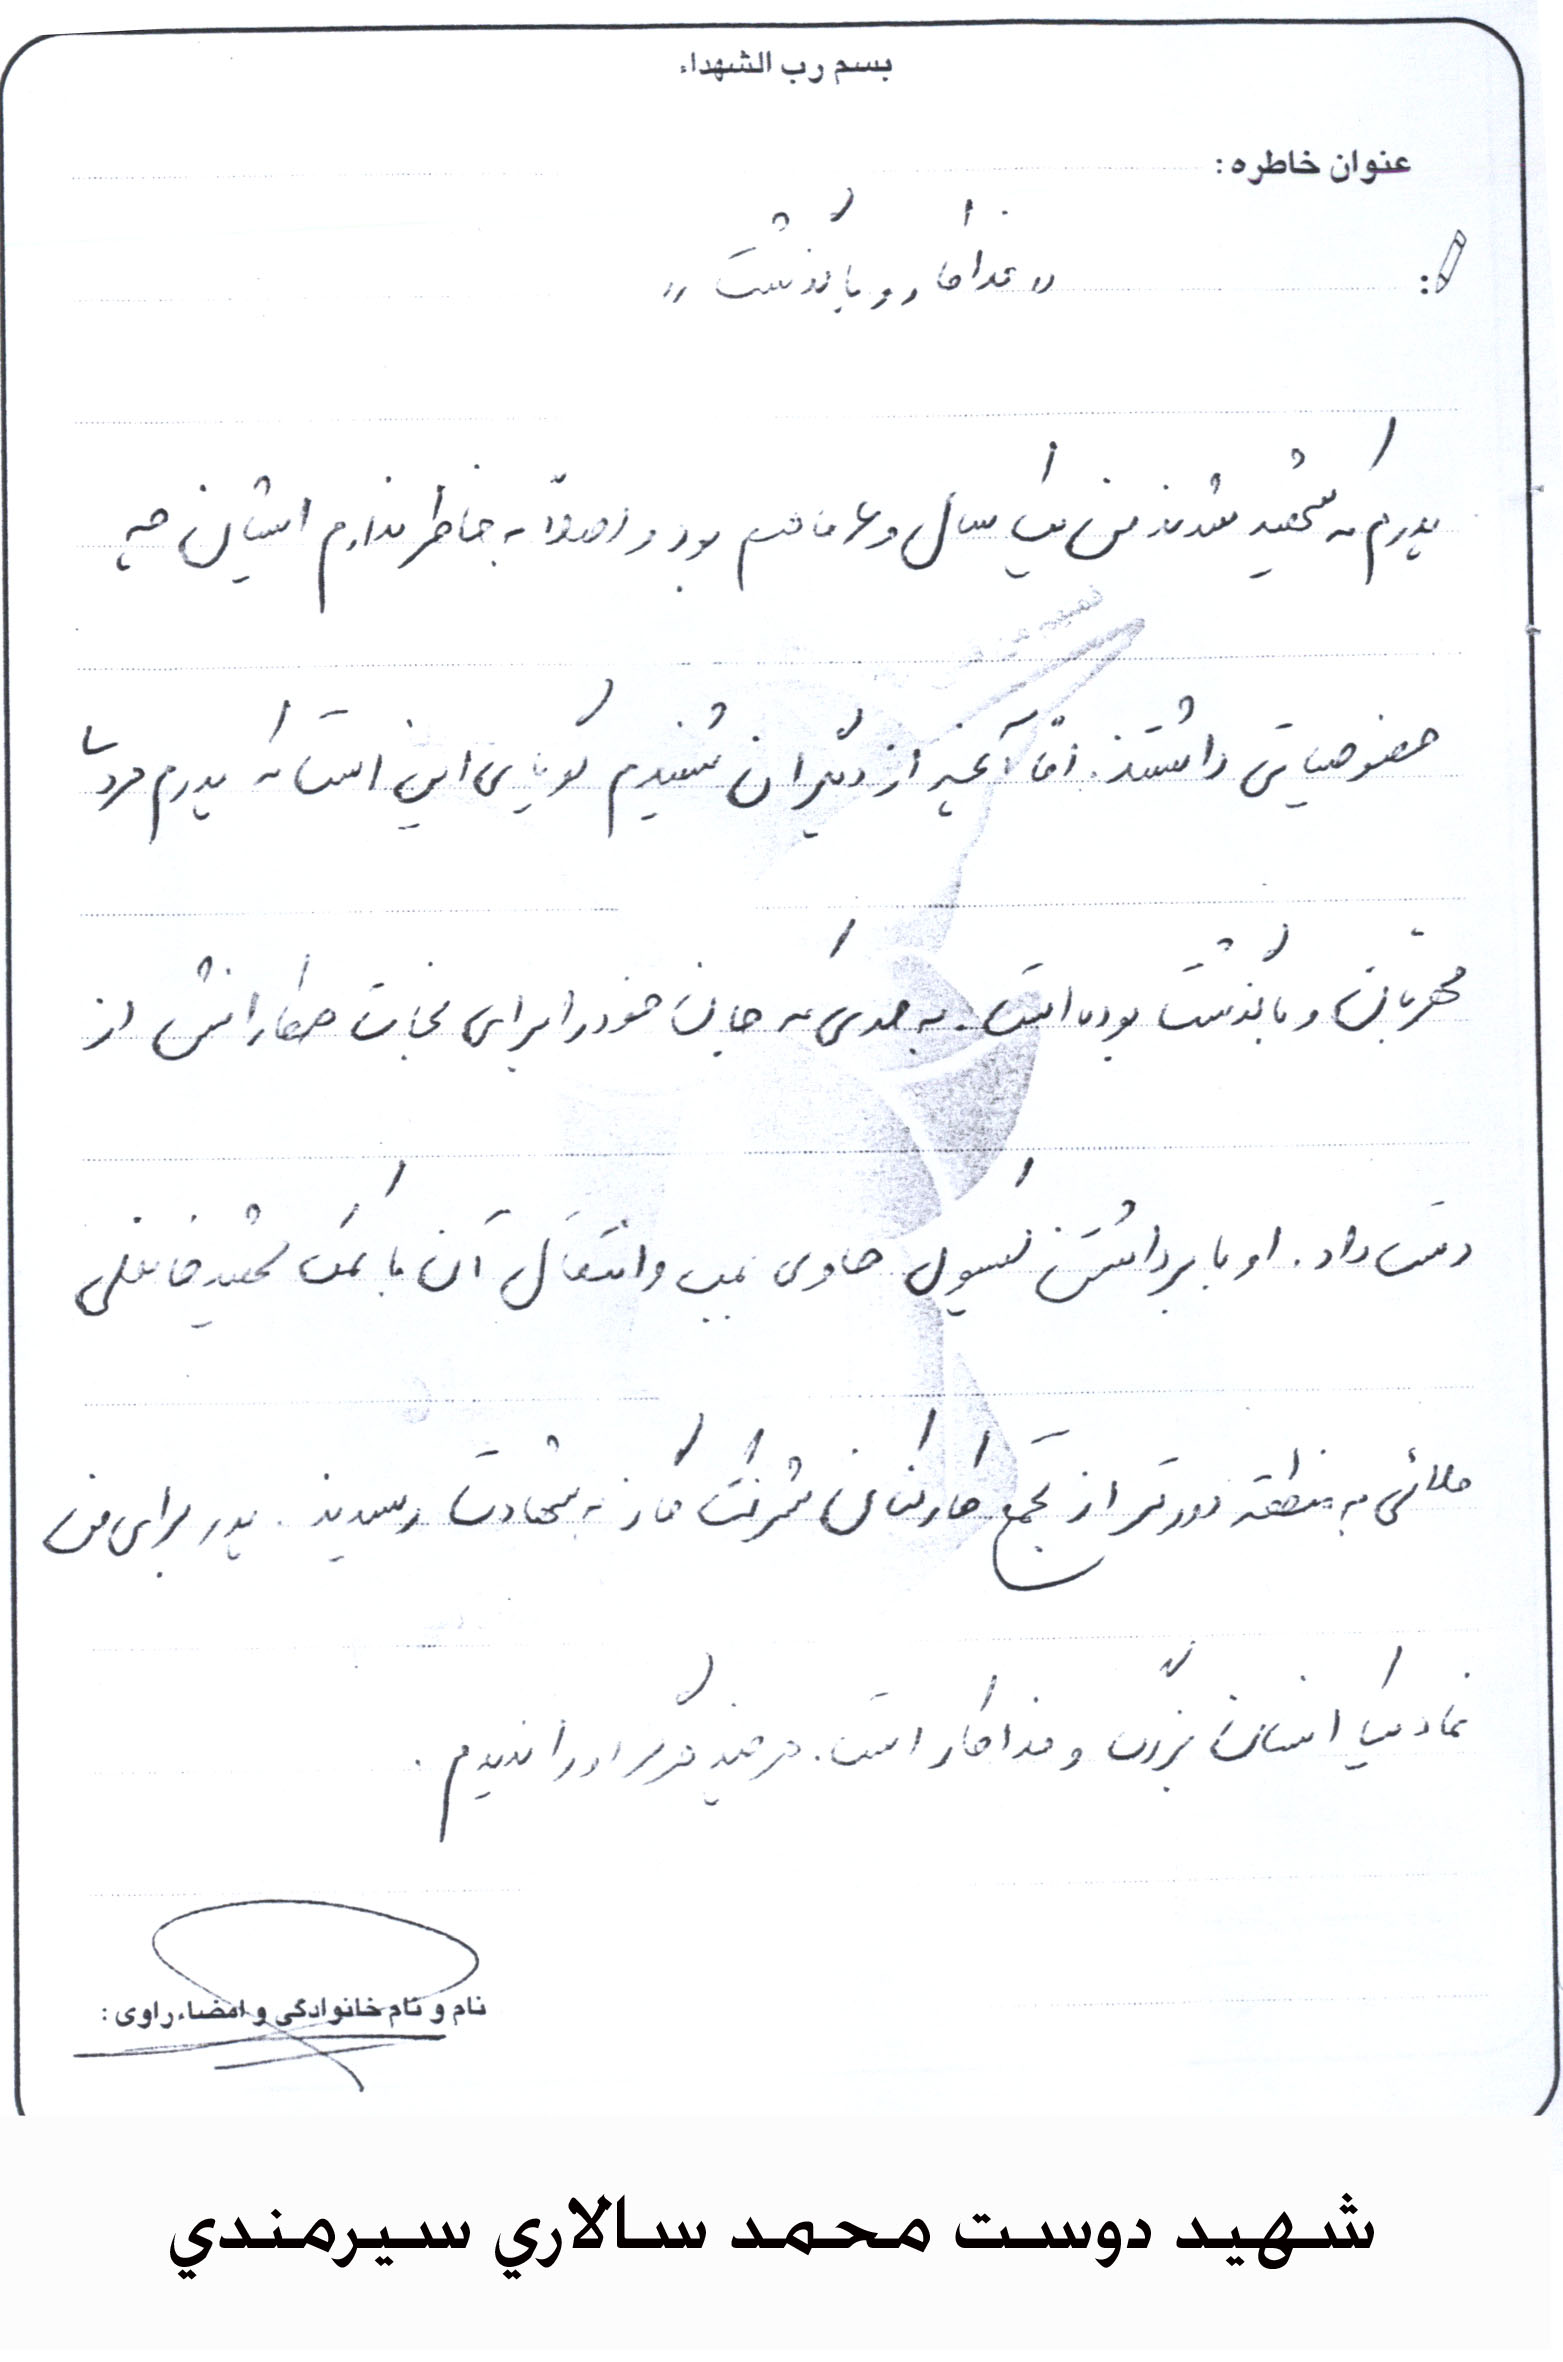 بسم رب الشهداء
عنوان خاطره :
« فداکار و باگذشت »
پدرم که شهید شدند من یک سال و ۶ ماهم بود و اصلاً به خاطر ندارم ایشان چه
خصوصیاتی داشتند. امّا آنچه از دیگران شنیدم گویای این است که پدرم مردی
مهربان و باگذشت بوده است. به حدی که جان خود را برای نجات همکارانش از
دست داد. او با برداشتن کپسول حاوی بمب و انتقال آن با کمک شهید خانعلی
ملائی به منطقه دورتر از تجمع کارکنان شرکت گاز به شهادت رسیدند. پدر برای من
نماد یک انسان بزرگ و فداکار است. هرچند هرگز او را ندیدم.
نام و نام خانوادگی و امضاء راوی :
شهيد دوست محمد سالاري سيرمندي